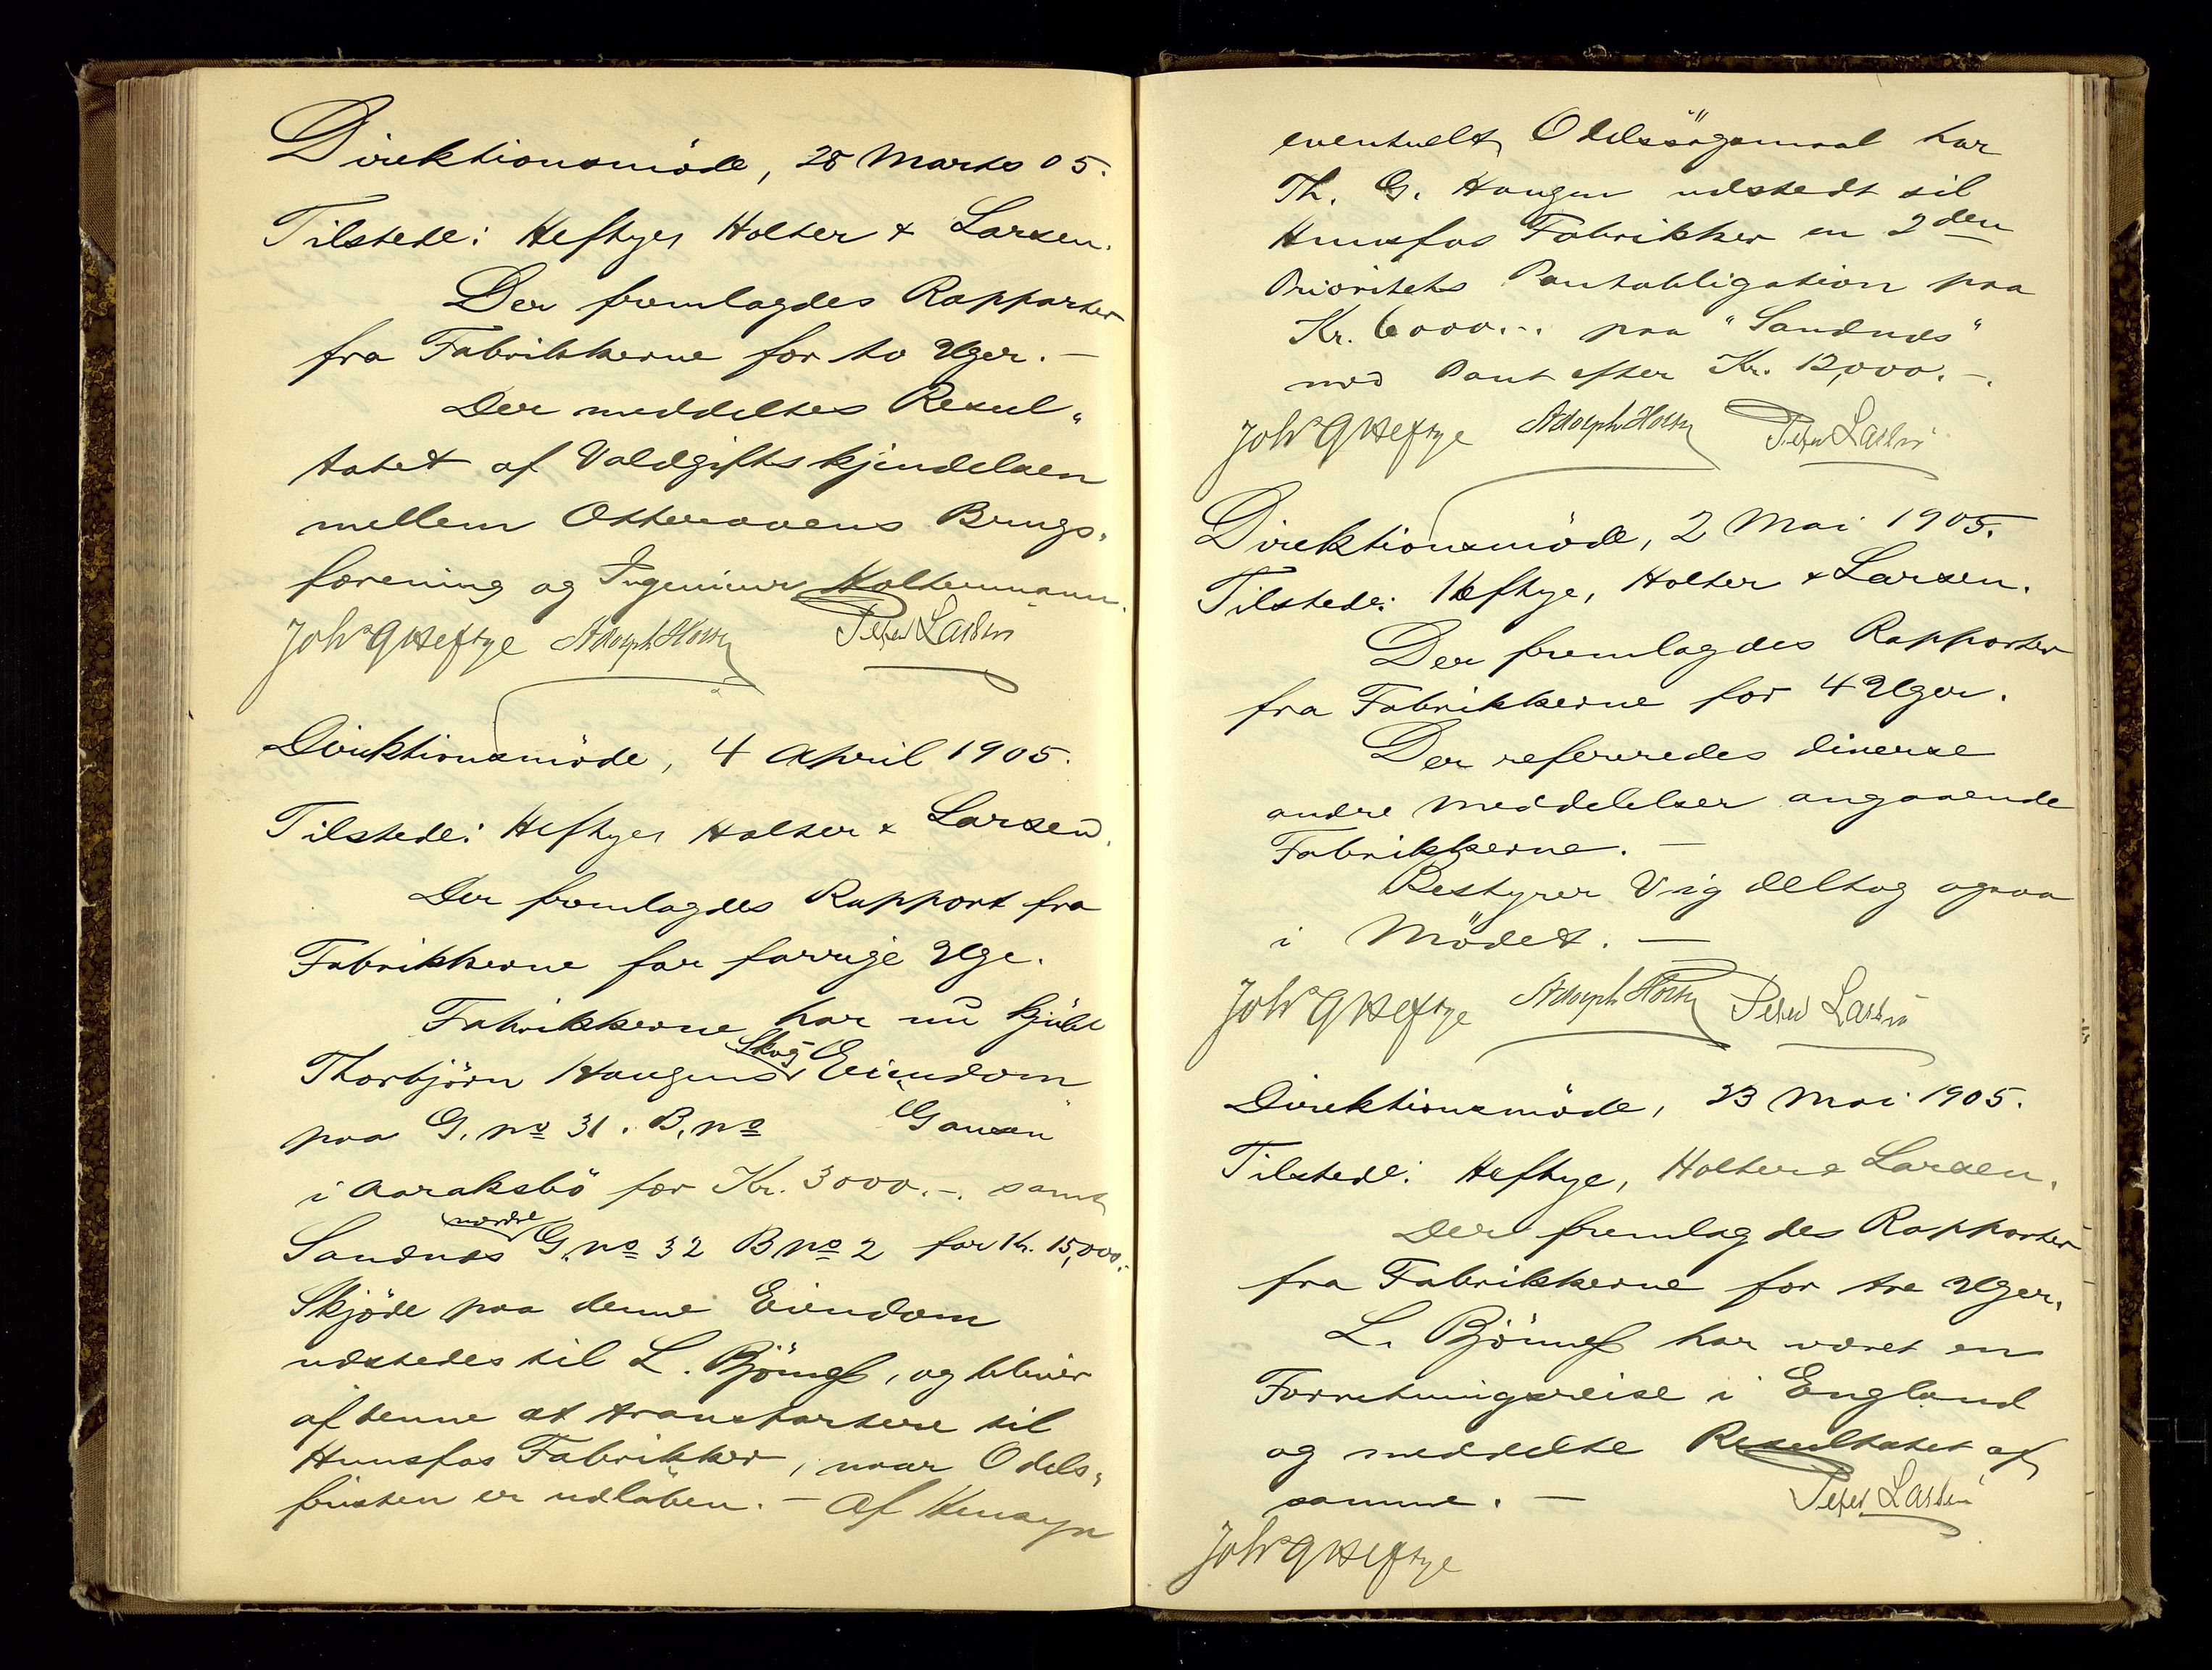 Direktionsmöde, 28 Marts 05.
Tilstede: Heftye, Holter & Larsen.
Der fremlagdes Rapporter
fra Fabrikkerne for to Uger. —
Der meddeltes Resul„
tatet af Voldgiftskjendelsen
mellem Otteraaens Brugs„
forening og Ingeniør Holtermann.
Johs G Heftye Adolph Holter Peter Larsen
Direktionsmöde, 4 April 1905.
Tilstede: Heftye, Holter & Larsen.
Der fremlagdes Rapport fra
Fabrikkerne for forrige Uge.
Fabrikkerne har nu kjöbt
Thorbjörn Haugens Skog Eiendom
paa G. no 31. B. no
i Aaraksbö for Kr. 3000.-. samt
Sandnes nordre G. no 32 B no 2 for Kr. 15,000.-
Skjöde paa denne Eiendom
udstedes til L. Björnes, og bliver
af denne at transportere til
Hunsfos Fabrikker, naar Odels„
fristen er udlöben. — Af Hensyn
eventuelt Odelssögsmaal har
Th. G. Haugen udstedt til
Hunsfos Fabrikker en 2den
Prioritets Pantobligation paa
Kr. 6000.-. paa "Sandnes"
med Pant efter Kr. 12,000.-.
Johs G Heftye Adolph Holter Peter Larsen
Direktionsmöde, 2 Mai 1905.
Tilstede: Heftye, Holter & Larsen.
Der fremlagdes Rapporter
fra Fabrikkerne for 4 Uger.
Der refereredes diverse
andre Meddelelser angaaende
Fabrikkerne. —
Bestyrer Vig deltog ogsaa
i Mödet. —
Johs G Heftye Adolph Holter Peter Larsen
Direktionsmöde, 23 Mai 1905.
Tilstede: Heftye, Holter & Larsen.
Der fremlagdes Rapporter
fra Fabrikkerne for tre Uger.
L. Björnes har været en
Forretningsreise i England
og meddelte Resultatet af
samme. — Peter Larsen
Johs G Heftye